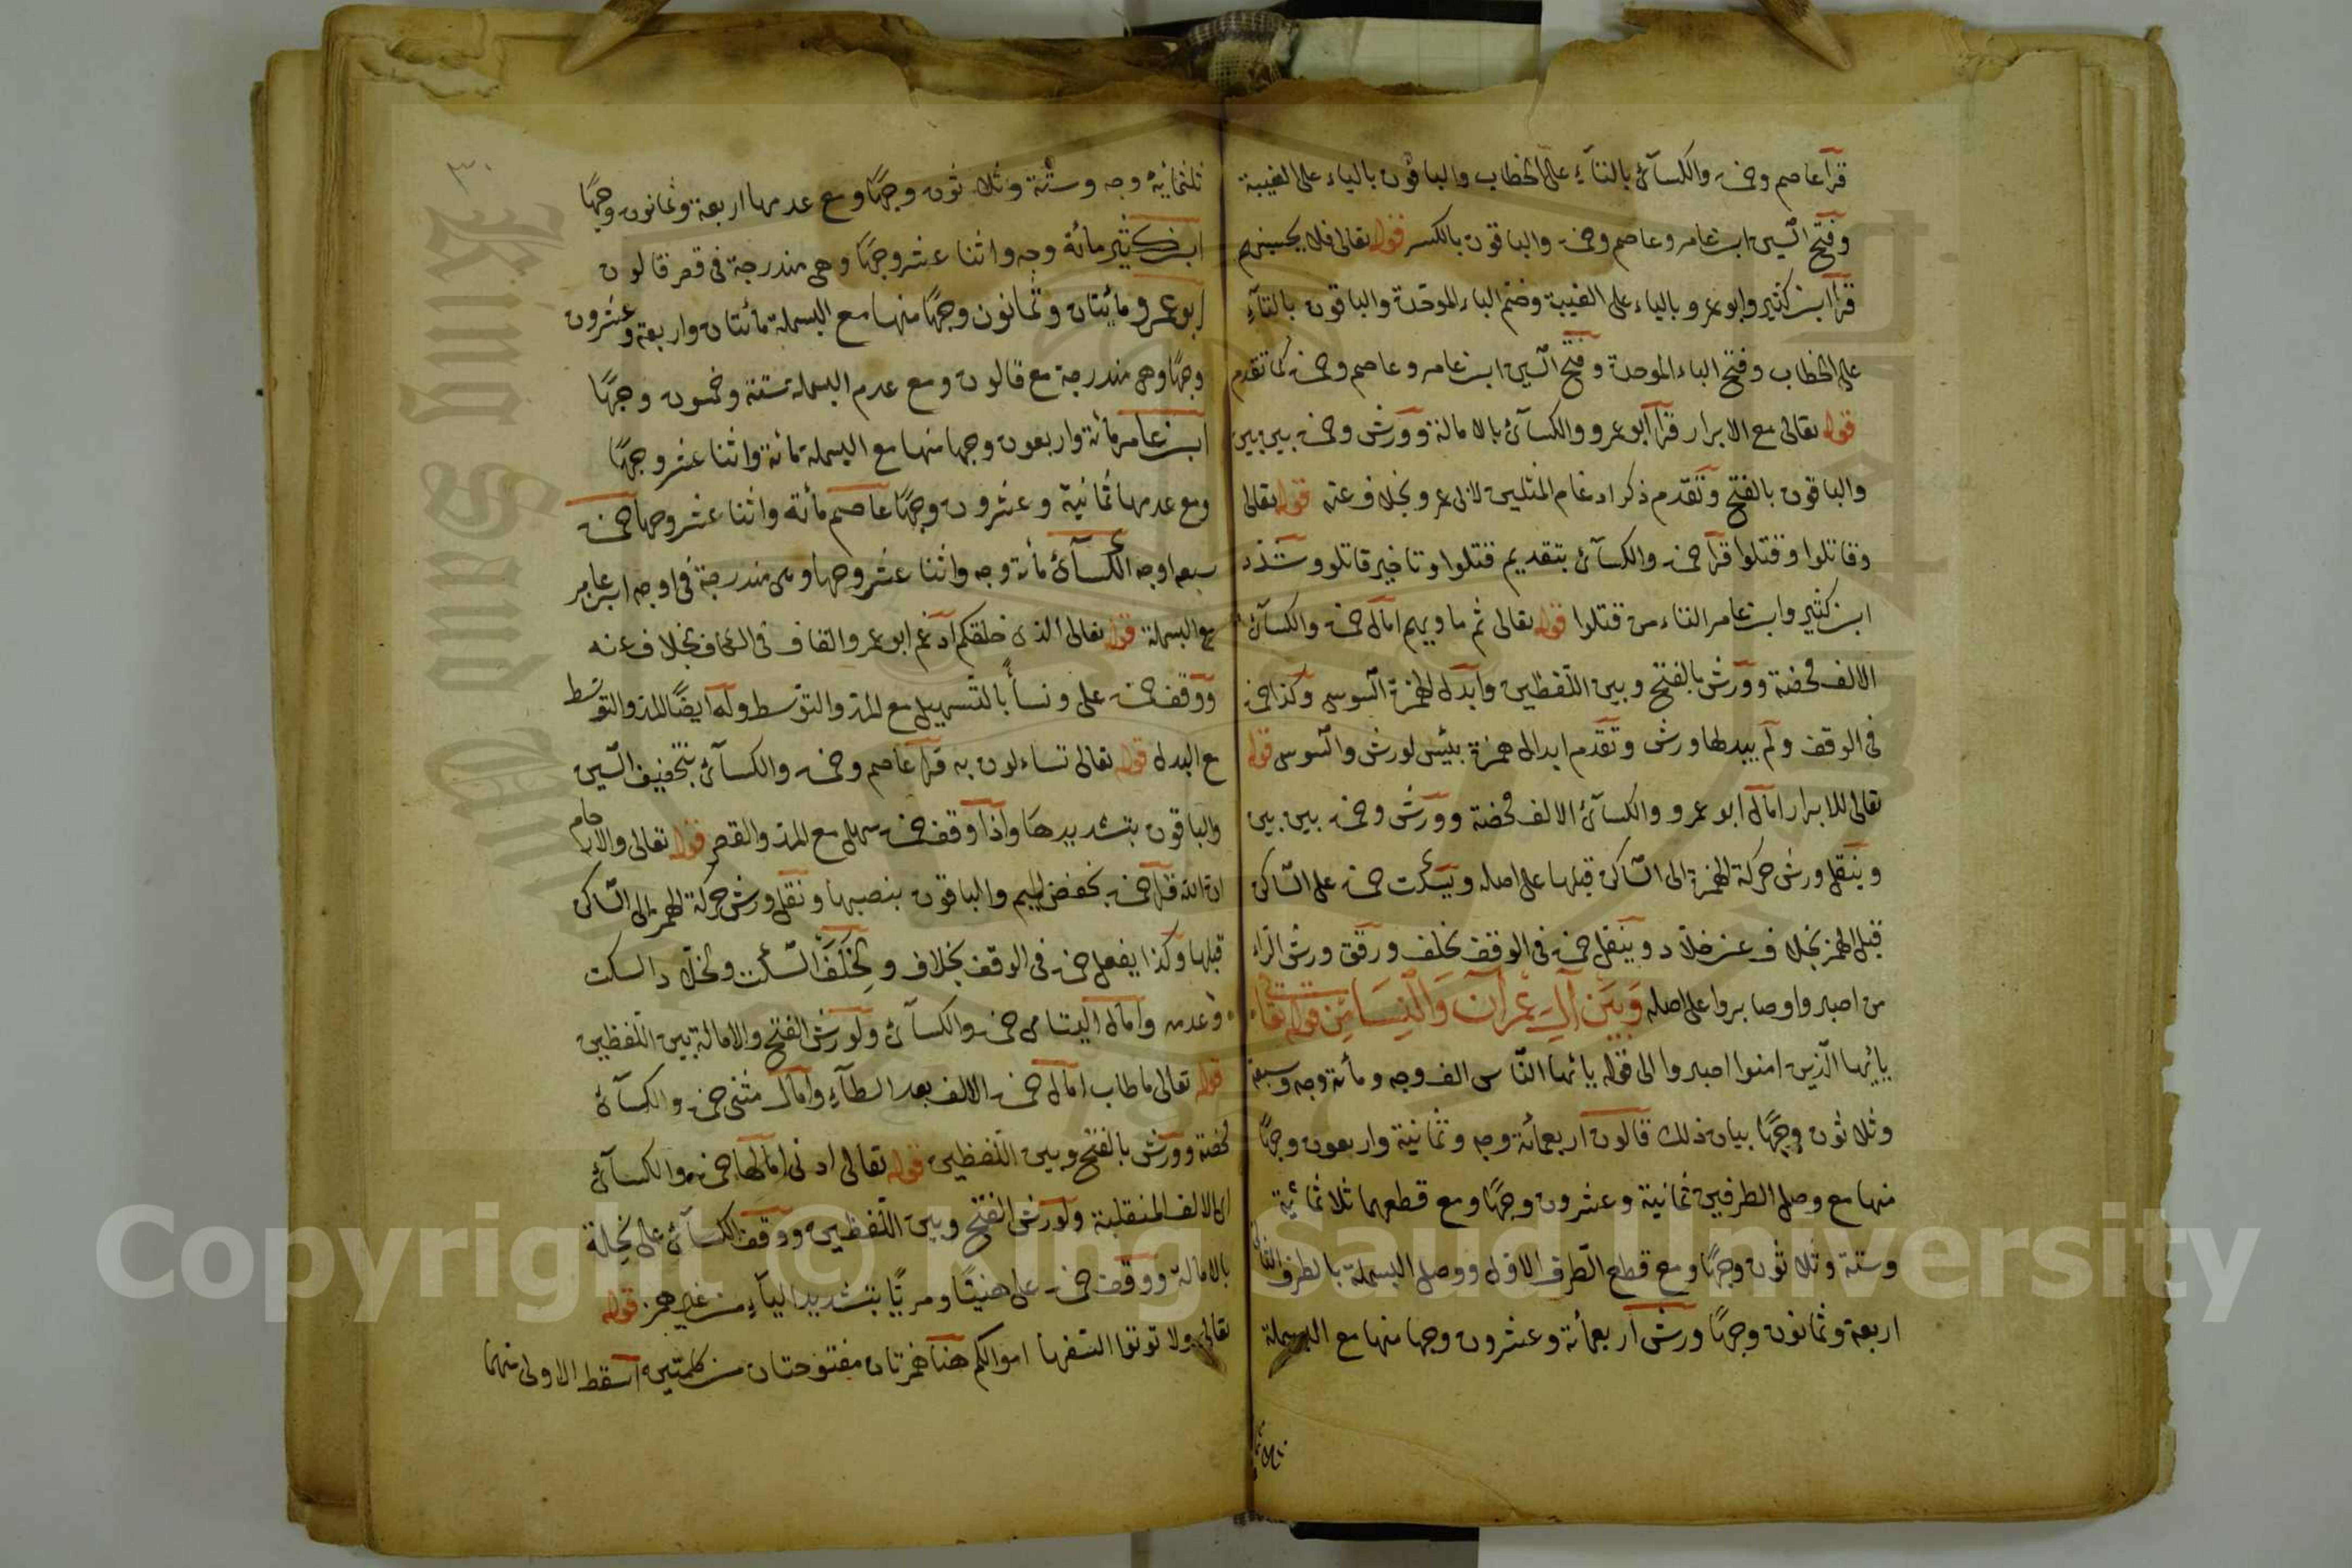 قرأ عاصم وحمزة والكسآئى بالتآءِ على الخطاب والباقون بالياء على الغيبة
وفتح السّين ابن عامر وعاصم وحمزة والباقون بالكسر قوله تعالى فلا يحسبنهم
قرأ ابن كثير وابو عمرو بالياء على الغيبة وضم الباء الموحّدة والباقون بالتآءِ
على الخطاب وفتح الباء الموحدة وفتح السّين ابن عامر وعاصم وحمزة كما تقدم
قوله تعالى مع الابرار قرأ ابو عمرو والكسآئى بالامالة وورش وحمزة بين بين
والباقون بالفتح وتقدم ذكر ادغام المثلين لابى عمرو بخلاف عنه قوله تعالى
وقاتلوا وقتلوا قرأ حمزة والكسآئى بتقديم قتلوا وتاخير قاتلوا وشدّد
ابن كثير وابن عامر التاء من قتلوا قوله تعالى ثم ماويهم امال حمزة والكسآئى
الالف محضة وورش بالفتح وبين اللفظين وابدل الهمزة السّوسى وكذا حمزة
فى الوقف ولم يبدلها ورش وتقدم ابدال همزة بئيس لورش والسّوسى قوله
تعالى للابرار امال ابو عمرو والكسآئى الالف محضة وورش وحمزة بين بين
وينقل ورش حركة الهمزة الى السّاكن قبلها على اصله ويسكت حمزة على السّاكن
قبل الهمز بخلاف عن خلاّد وينقل حمزة فى الوقف بخلف ورقق ورش الرّاء
من اصبروا وصابروا على اصله وَبَيْن آلِ عِمْرَانَ وَالنِّسَا مِن قوله تعا
يايها الّذين امنوا اصبروا الى قوله يائها النّاس الف وجه ومائة وجه وسبعة
وثلاثون وجهًا بيان ذلك قالون اربعمائة وجه وثمانية واربعون وجهًا
منها مع وصل الطرفين ثمانية وعشرون وجهًا ومع قطعهما ثلاثمائية
وستة وثلاثون وجهًا ومع قطع الطّرف الاول ووصل البسملة بالطرف الثانى
اربعة وثمانون وجهًا ورش اربعمائة وعشرون وجها منها مع البسملة
ثلثماية
٣٠
ثلثمايه وجه وستّة وثلاثون وجهًا ومع عدمها اربعة وثمانون وجهًا
ابن كثير مائة وجه واثنا عشر وجهًا وهى مندرجة فى قصر قالون
ابو عمرو مائيتان وثمانون وجهًا منها مع البسملة مائتان واربعة وعشرون
وجهًا وهى مندرجة مع قالون ومع عدم البسملة ستة وخمسون وجهًا
ابن عامر مائة واربعون وجها منها مع البسملة مائة واثنا عشر وجهًا
ومع عدمها ثمانية وعشرون وجهًا عاصم مائة واثنا عشر وجها حمزة
سبعه اوجه الكسآئى مائة وجه واثنا عشر وجها وهى مندرجة فى اوجه ابن عامر
مع البسملة قوله تعالى الذى خلقكم ادغم ابو عمرو القاف فى الكاف بخلاف عنه
ووقف حمزة على ونسآءً بالتّسهيل مع المدّ والتوسط وله ايضًا المدّ والتوسّط
مع البدل قوله تعالى تساءلون به قرأ عاصم وحمزة والكسآئى بتخفيف السّين
والباقون بتشديدها واذا وقف حمزة سهل مع المدّ والقصر قوله تعالى والارحام
ان الله قرأ حمزة بخفض الميم والباقون بنصبها ونقل ورش حركة الهمز الى السّاكن
قبلها وكذا يفعل حمزة فى الوقف بخلاف ولِخَلَفَ السّكت ولخلاّد السكت
وعدمه وامال اليتامى حمزة والكسآئى ولورش الفتح والامالة بين اللفظين
قوله تعالى ماطاب امال حمزة الالف بعد الطآءِ وامال مثنى حمزة والكسآئى
محضة وورش بالفتح وبين اللفظين قوله تعالى ادنى امالها حمزة والكسآئى
اى الالف المنقلبة ولورش الفتح وبين اللفظين ووقف الكسآئى على نِحلة
بالامالة ووقف حمزة على هنيئًا ومريًّا بتشديد اليآءِ من غير همز قوله
تعالى ولا توتوا السّفها اموالكم هنا همزتان مفتوحتان من كلمتين اسقط الاولى منهما
King Saud University
Copyright © King Saud University